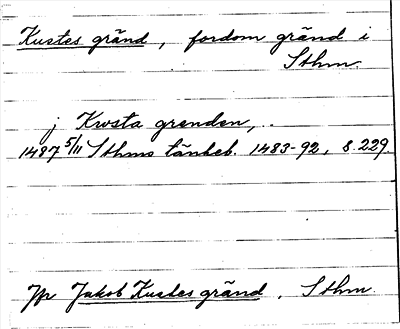 Kustes gränd, fordom gränd i
Sthm.
j Kwsta grenden, ..
1487 5/11 Sthms tänkeb. 1483-92, s. 229.
Jfr Jakob Kustes gränd, Sthm.